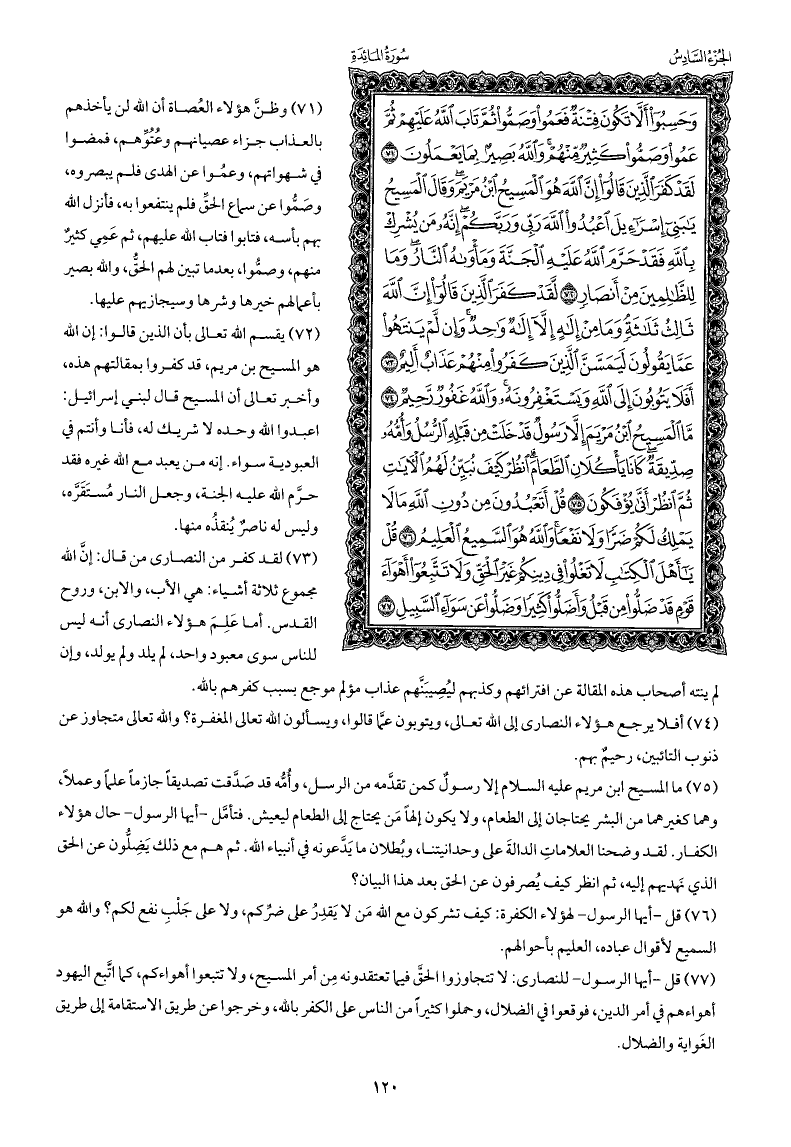 الجزء السادس
سورة المائدة
وَحَسِبُوٓا۟ أَلَّا تَكُونَ فِتْنَةٌ فَعَمُوا۟ وَصَمُّوا۟ ثُمَّ تَابَ ٱللَّهُ عَلَيْهِمْ ثُمَّ
عَمُوا۟ وَصَمُّوا۟ كَثِيرٌ مِّنْهُمْ ۚ وَٱللَّهُ بَصِيرٌۢ بِمَا يَعْمَلُونَ ٧١
لَقَدْ كَفَرَ ٱلَّذِينَ قَالُوٓا۟ إِنَّ ٱللَّهَ هُوَ ٱلْمَسِيحُ ٱبْنُ مَرْيَمَ ۖ وَقَالَ ٱلْمَسِيحُ
يَٰبَنِىٓ إِسْرَٰٓءِيلَ ٱعْبُدُوا۟ ٱللَّهَ رَبِّى وَرَبَّكُمْ ۖ إِنَّهُۥ مَن يُشْرِكْ
بِٱللَّهِ فَقَدْ حَرَّمَ ٱللَّهُ عَلَيْهِ ٱلْجَنَّةَ وَمَأْوَىٰهُ ٱلنَّارُ ۖ وَمَا
لِلظَّٰلِمِينَ مِنْ أَنصَارٍ ٧٢ لَّقَدْ كَفَرَ ٱلَّذِينَ قَالُوٓا۟ إِنَّ ٱللَّهَ
ثَالِثُ ثَلَٰثَةٍ ۘ وَمَا مِنْ إِلَٰهٍ إِلَّآ إِلَٰهٌ وَٰحِدٌ ۚ وَإِن لَّمْ يَنتَهُوا۟
عَمَّا يَقُولُونَ لَيَمَسَّنَّ ٱلَّذِينَ كَفَرُوا۟ مِنْهُمْ عَذَابٌ أَلِيمٌ ٧٣
أَفَلَا يَتُوبُونَ إِلَى ٱللَّهِ وَيَسْتَغْفِرُونَهُۥ ۚ وَٱللَّهُ غَفُورٌ رَّحِيمٌ ٧٤
مَّا ٱلْمَسِيحُ ٱبْنُ مَرْيَمَ إِلَّا رَسُولٌ قَدْ خَلَتْ مِن قَبْلِهِ ٱلرُّسُلُ وَأُمُّهُۥ
صِدِّيقَةٌ ۖ كَانَا يَأْكُلَانِ ٱلطَّعَامَ ۗ ٱنظُرْ كَيْفَ نُبَيِّنُ لَهُمُ ٱلْءَايَٰتِ
ثُمَّ ٱنظُرْ أَنَّىٰ يُؤْفَكُونَ ٧٥ قُلْ أَتَعْبُدُونَ مِن دُونِ ٱللَّهِ مَا لَا
يَمْلِكُ لَكُمْ ضَرًّا وَلَا نَفْعًا ۚ وَٱللَّهُ هُوَ ٱلسَّمِيعُ ٱلْعَلِيمُ ٧٦ قُلْ
يَٰٓأَهْلَ ٱلْكِتَٰبِ لَا تَغْلُوا۟ فِى دِينِكُمْ غَيْرَ ٱلْحَقِّ وَلَا تَتَّبِعُوٓا۟ أَهْوَآءَ
قَوْمٍ قَدْ ضَلُّوا۟ مِن قَبْلُ وَأَضَلُّوا۟ كَثِيرًا وَضَلُّوا۟ عَن سَوَآءِ ٱلسَّبِيلِ ٧٧
(٧١) وظنَّ هؤلاء العُصاة أن الله لن يأخذهم
بالعذاب جزاء عصيانهم وعُتُوِّهم، فمضوا
في شهواتهم، وعمُوا عن الهدى فلم يبصروه،
وصَمُّوا عن سماع الحقِّ فلم ينتفعوا به، فأنزل الله
بهم بأسه، فتابوا فتاب الله عليهم، ثم عَمِي كثيرٌ
منهم، وصمُّوا، بعدما تبين لهم الحقُّ، والله بصير
بأعمالهم خيرها وشرها وسيجازيهم عليها.
(٧٢) يقسم الله تعالى بأن الذين قالوا: إن الله
هو المسيح بن مريم، قد كفروا بمقالتهم هذه،
وأخبر تعالى أن المسيح قال لبني إسرائيل:
اعبدوا الله وحده لا شريك له، فأنا وأنتم في
العبودية سواء. إنه من يعبد مع الله غيره فقد
حرَّم الله عليه الجنة، وجعل النار مُستَقَرَّه،
وليس له ناصرٌ يُنقذُه منها.
(٧٣) لقد كفر من النصارى من قال: إنَّ الله
مجموع ثلاثة أشياء: هي الأب، والابن، وروح
القدس. أما عَلِمَ هؤلاء النصارى أنه ليس
للناس سوى معبود واحد، لم يلد ولم يولد، وإن
لم ينته أصحاب هذه المقالة عن افترائهم وكذبهم ليُصِيبَنَّهم عذاب مؤلم موجع بسبب كفرهم بالله.
(٧٤) أفلا يرجع هؤلاء النصارى إلى الله تعالى، ويتوبون عمَّا قالوا، ويسألون الله تعالى المغفرة؟ والله تعالى متجاوز عن
ذنوب التائبين، رحيمٌ بهم.
(٧٥) ما المسيح ابن مريم عليه السلام إلا رسولٌ كمن تقدَّمه من الرسل، وأُمُّه قد صَدَّقت تصديقاً جازماً علماً وعملاً،
وهما كغيرهما من البشر يحتاجان إلى الطعام، ولا يكون إلهاً مَن يحتاج إلى الطعام ليعيش. فتأمَّل -أيها الرسول- حال هؤلاء
الكفار. لقد وضحنا العلاماتِ الدالةَ على وحدانيتنا، وبُطلان ما يَدَّعونه في أنبياء الله. ثم هم مع ذلك يَضِلُّون عن الحق
الذي نَهديهم إليه، ثم انظر كيف يُصرفون عن الحق بعد هذا البيان؟
(٧٦) قل -أيها الرسول- لهؤلاء الكفرة: كيف تشركون مع الله مَن لا يَقدِرُ على ضرِّكم، ولا على جَلْبِ نفع لكم؟ والله هو
السميع لأقوال عباده، العليم بأحوالهم.
(٧٧) قل -أيها الرسول- للنصارى: لا تتجاوزوا الحقَّ فيما تعتقدونه مِن أمر المسيح، ولا تتبعوا أهواءكم، كما اتَّبع اليهود
أهواءهم في أمر الدين، فوقعوا في الضلال، وحملوا كثيراً من الناس على الكفر بالله، وخرجوا عن طريق الاستقامة إلى طريق
الغَواية والضلال.
١٢٠